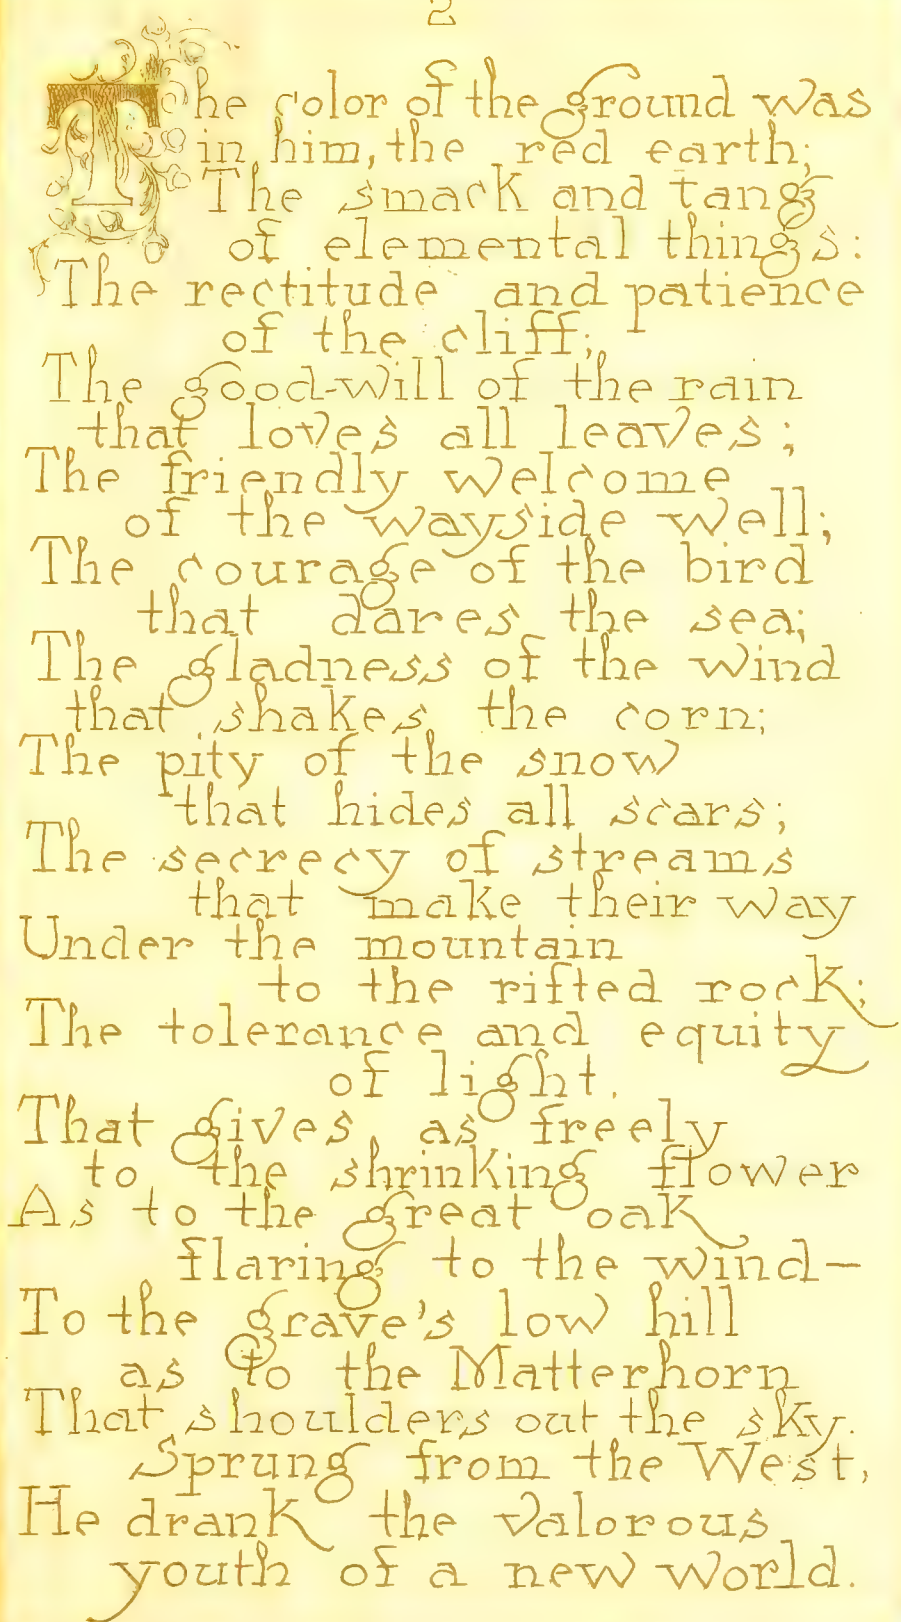 2
The color of the ground was
in him, the red earth;
The smack and tang
of elemental things:
The rectitude and patience
of the cliff;
The good-will of the rain
that loves all leaves;
The friendly welcome
of the wayside well;
The courage of the bird
that dares the sea;
The gladness of the wind
that shakes the corn;
The pity of the snow
that hides all scars;
The secrecy of streams
that make their way
Under the mountain
to the rifted rock;
The tolerance and equity
of light.
That gives, as freely
to the shrinking flower
As to the great oak
flaring to the wind—
To the grave's low hill
as to the Matterhorn
That shoulders out the sky.
Sprung from the West,
He drank the valorous
youth of a new world.